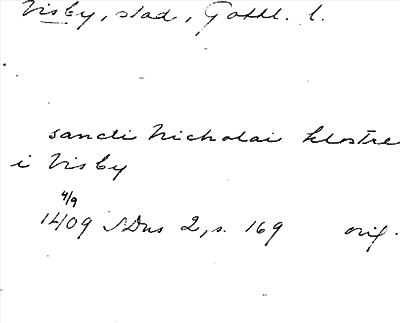 Visby, stad, Gotll. l.
sancti Nicholai klostre
i Visby
4/9
1409 SDns 2, s. 169 orig.